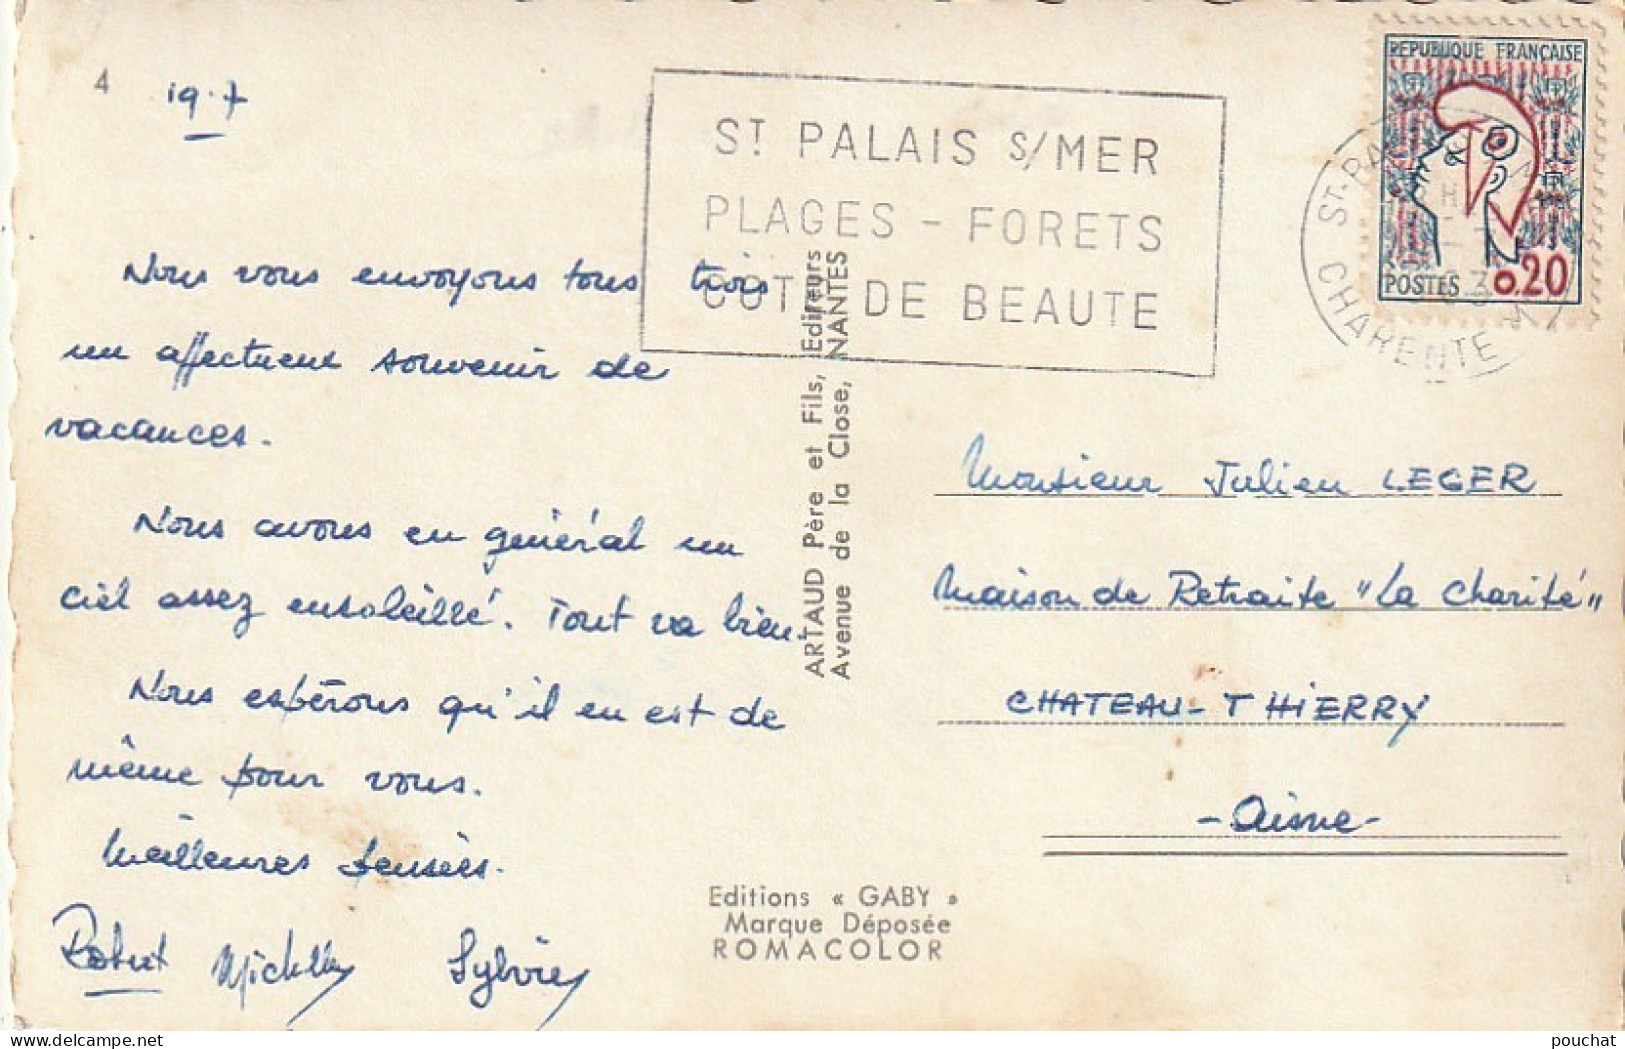 4
19.7
Nous vous envoyons tous trois
un affectueux souvenir de
vacances.
Nous avons en général un
ciel assez ensoleillé. Tout va bien.
Nous espérons qu'il en est de
même pour vous.
Meilleures pensées.
Robert Michelle Sylvie
ST PALAIS S/MER
PLAGES - FORETS
COTE DE BEAUTE
REPUBLIQUE FRANÇAISE
POSTES 0,20
CHARENTE
ARTAUD Père et Fils, Editeurs
Avenue de la Close, NANTES
Monsieur Julien LEGER
Maison de Retraite "La Charité"
CHATEAU-THIERRY
- Aisne -
Editions « GABY »
Marque Déposée
ROMACOLOR
delcampe.net
pouchat